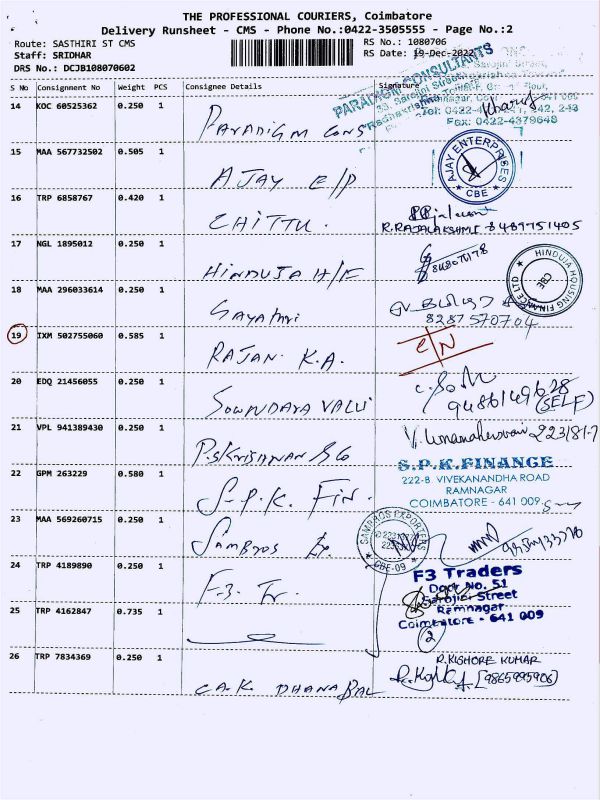 THE PROFESSIONAL COURIERS, Coimbatore
Delivery Runsheet - CMS - Phone No.:0422-3505555 - Page No.:2
Route: SASTHIRI ST CMS
RS No.: 1080706
Staff: SRIDHAR
RS Date: 19-Dec-2022
DRS No.: DCJB108070602
S No Consignment No Weight PCS Consignee Details Signature
PARADIGM CONSULTANTS
14 KOC 60525362 0.250 1
PARADIGM CONS
Fax: 0422-4379648
15 MAA 567732502 0.505 1
AJAY E/P
AJAY ENTERPRISES
CBE
16 TRP 6858767 0.420 1
CHITTU.
R.RAJALAKSHMI 8489751405
17 NGL 1895012 0.250 1
HINDUJA H/F
HINDUJA HOUSING FINANCE LTD
CBE
18 MAA 296033614 0.250 1
Gayathri
8287570704
19 IXM 502755060 0.585 1
RAJAN. K.A.
20 EDQ 21456055 0.250 1
SOWNDARA VALLI
9486149628
(SELF)
21 VPL 941389430 0.250 1
P.S KRISHNAN & Co
V. Umamaheswari 223181-7
22 GPM 263229 0.580 1
S.P.K. FIN.
S.P.K.FINANCE
222-B, VIVEKANANDHA ROAD
RAMNAGAR
COIMBATORE - 641 009
23 MAA 569260715 0.250 1
SAMBROS Ex.
SAMBROS EXPORTERS
CBE-09
24 TRP 4189890 0.250 1
F.3. Tr.
F3 Traders
Door No. 51
Sarojini Street
Ramnagar
Coimbatore - 641 009
25 TRP 4162847 0.735 1
2
26 TRP 7834369 0.250 1
C.A.K. DHANABAL
R.KISHORE KUMAR
[9865995906]